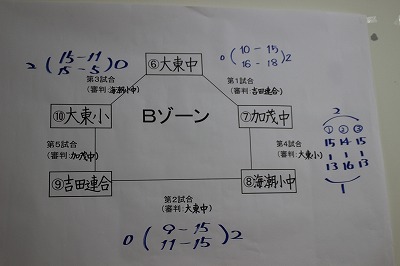 2 (15-11 15-5) 0
⑥大東中
0 (10-15 16-18) 2
第3試合
(審判:海潮小中)
第1試合
(審判:吉田連合)
⑩大東小
Bゾーン
⑦加茂中
第5試合
(審判:加茂中)
第4試合
(審判:大東小)
2
① ② ③
15 14 15
| | |
13 16 13
1
⑨吉田連合
⑧海潮小中
第2試合
(審判:大東中)
0 (9-15 11-15) 2